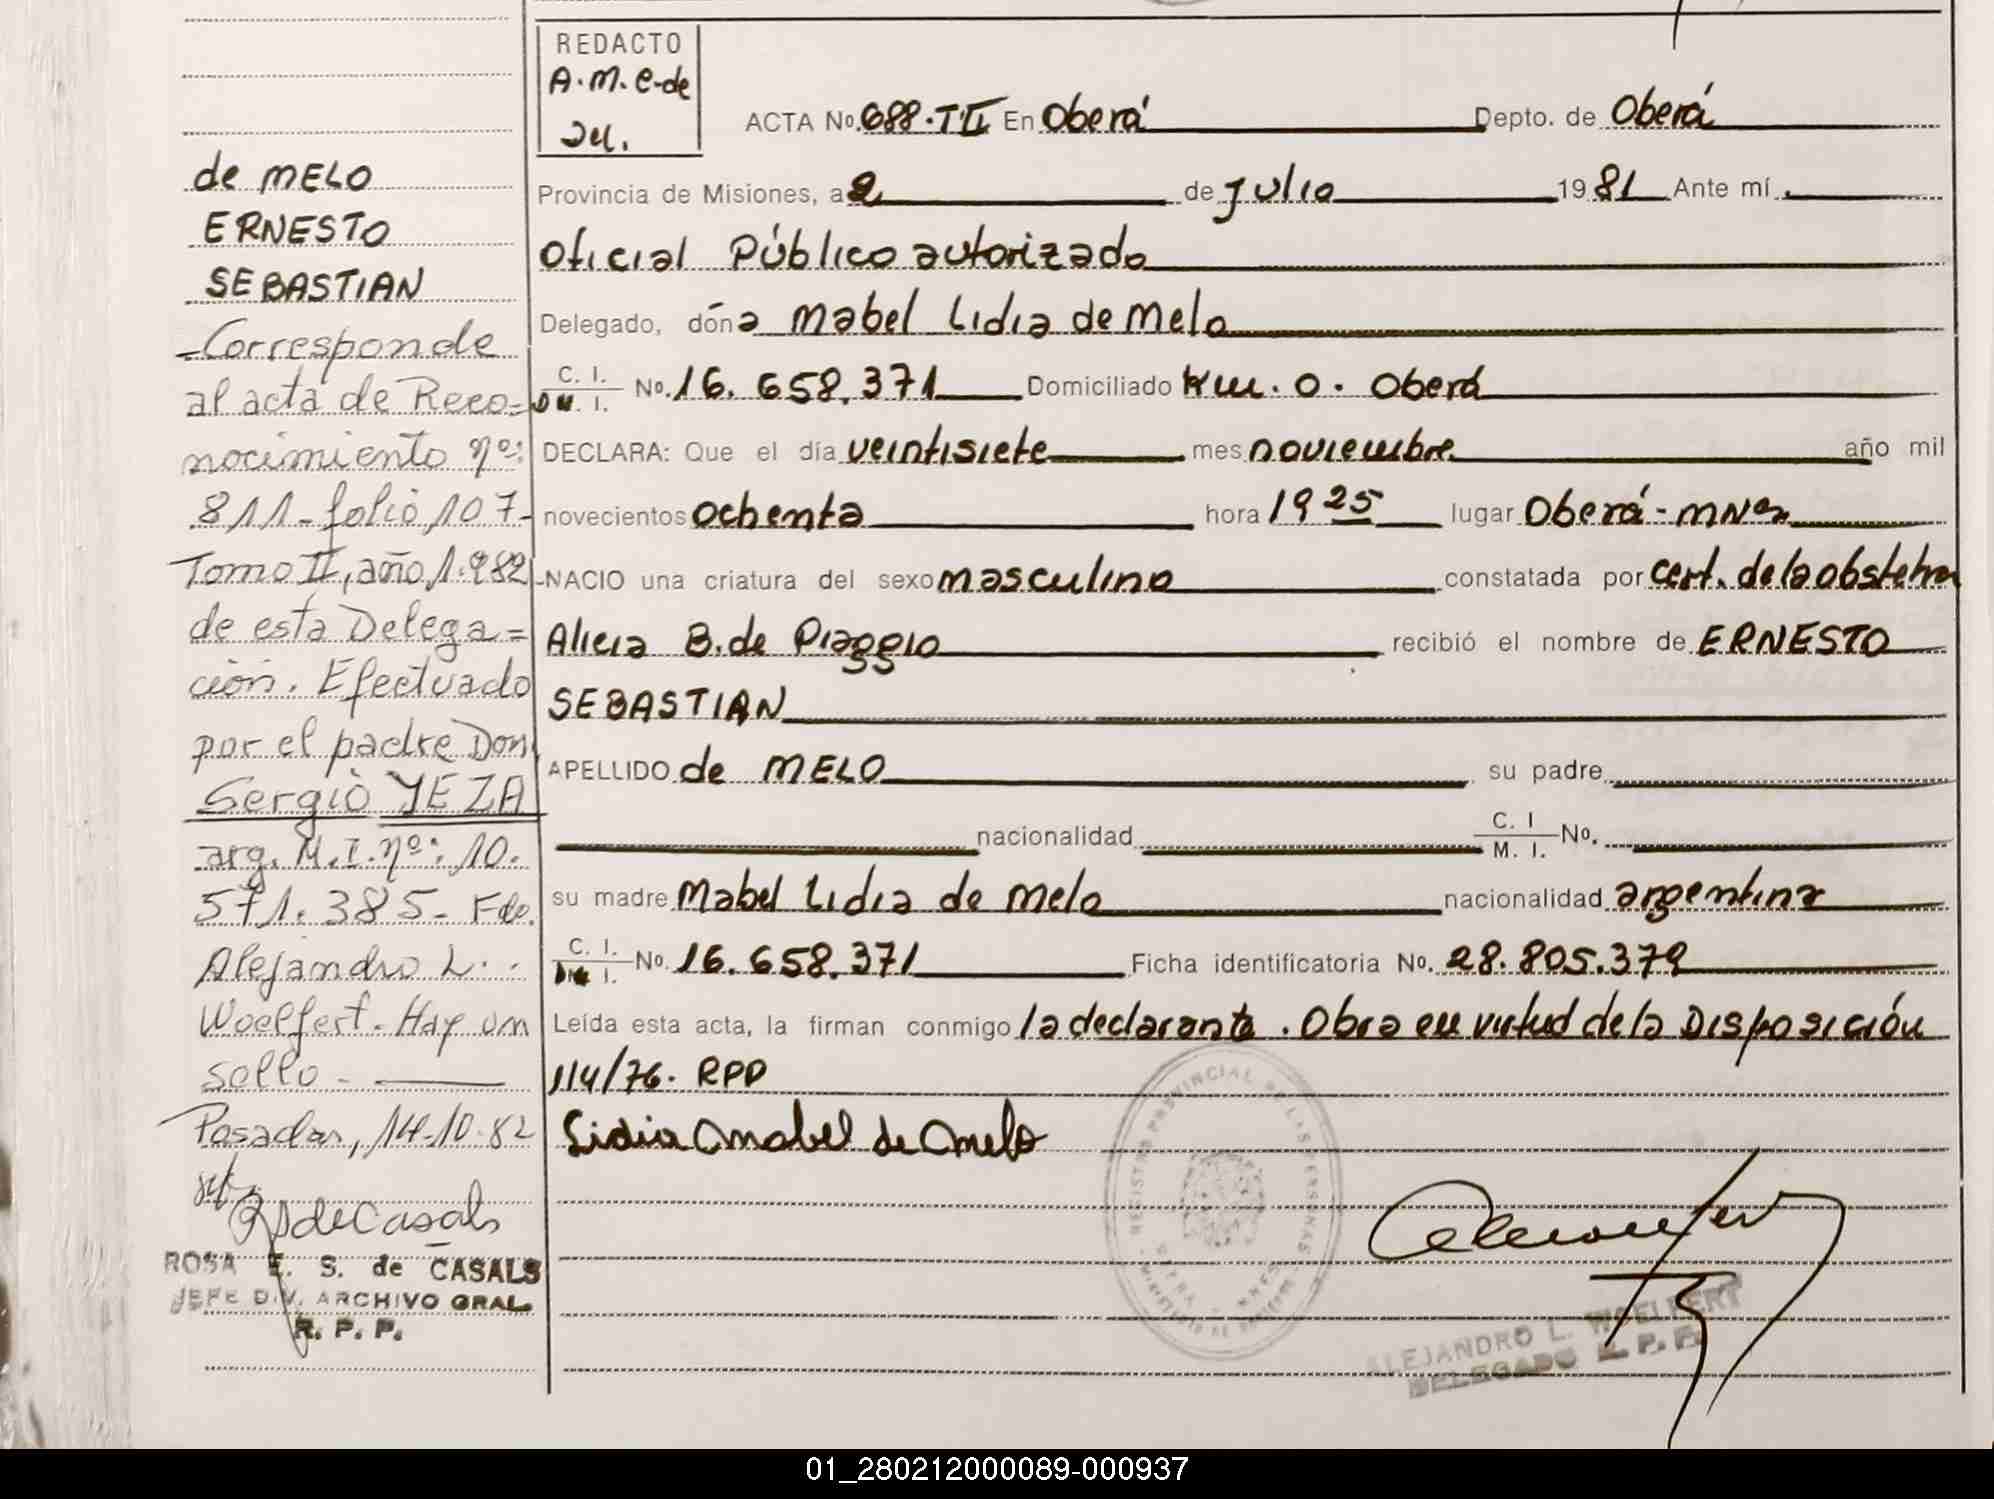 de MELO
ERNESTO
SEBASTIAN
-Corresponde
al acta de Reco=
nocimiento nº:
811- folio 107-
Tomo II, año 1.982
de esta Delega=
ción. Efectuado
por el padre Don
Sergio YEZA
arg. M.I. nº: 10.
571.385- Fdo.
Alejandro L.
Woelfert. Hay un
sello-
Posadas, 14-10-82
RSdeCasals
ROSA E. S. de CASALS
JEFE DIV. ARCHIVO GRAL.
R. P. P.
REDACTO
A.M.C-de
ACTA No. 688-TII En Oberá Depto. de Oberá
Provincia de Misiones, a 2 de Julio 1981 Ante mí
Oficial Público autorizado
Delegado, doña Mabel Lidia de Melo
C. I. DN. I. No. 16.658.371 Domiciliado Km. 0. Oberá
DECLARA: Que el día veintisiete mes noviembre año mil
novecientos ochenta hora 19 25 lugar Oberá-Mnes
NACIO una criatura del sexo masculino constatada por cert. de la obstetra
Alicia B. de Piaggio recibió el nombre de ERNESTO
SEBASTIAN
APELLIDO de MELO su padre
nacionalidad C. I M. I. No.
su madre Mabel Lidia de Melo nacionalidad argentina
C. I. DN I. No. 16.658.371 Ficha identificatoria No. 28.805.379
Leída esta acta, la firman conmigo la declarante. Obra en virtud de la Disposición
114/76. RPP
Lidia Mabel de Melo
REGISTRO PROVINCIAL DE LAS PERSONAS
MINISTERIO DE GOBIERNO
ALEJANDRO L. WOELFERT
DELEGADO R. P. P.
01_280212000089-000937